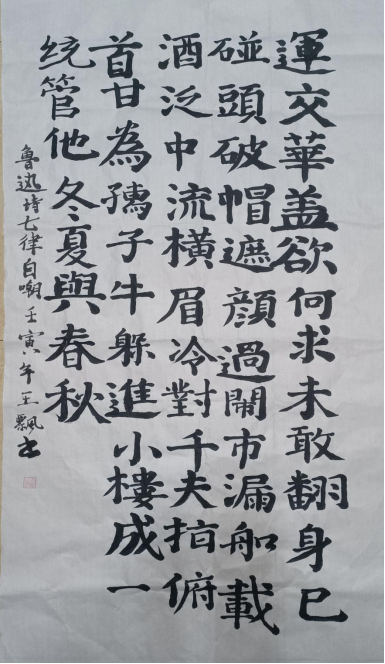 運交華盖欲何求未敢翻身已
碰頭破帽遮顔過閙市漏船載
酒泛中流横眉冷對千夫指俯
首甘為孺子牛躲進小樓成一
统管他冬夏與春秋
魯迅詩七律自嘲壬寅年王飄书